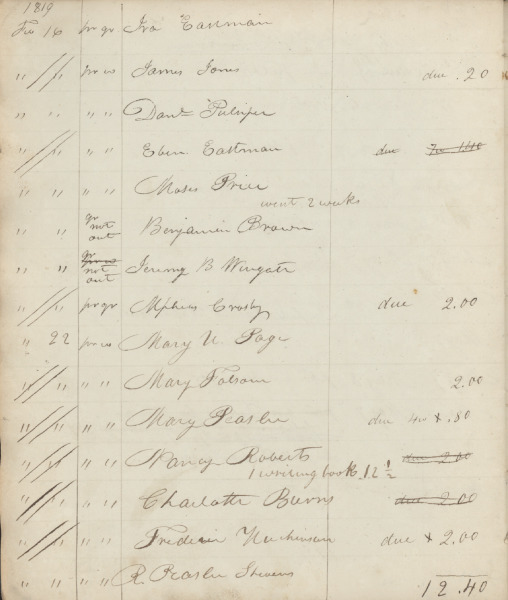 1819
Feb 16 pr gr Ira Eastman
" " pr w James Jones due .20
" " " " Danl Pulsifer
" " " " Eben Eastman due
" " " " Moses Price
went 2 weeks
" " gr not out Benjamin Brown
" " gr not out Jeremy B Wingate
" " pr gr Alpheus Crosby due 2.00
" 22 pr w Mary N. Page
" " " " Mary Folsom 2.00
" " " " Mary Peaslee due 4w & .80
" " " " Nancy Roberts due 2.00
1 writing book .12 1/2
" " " " Charlotte Burns due 2.00
" " " " Frederic Hutchinson due & 2.00
" " " " R. Peaslee Stevens
12.40